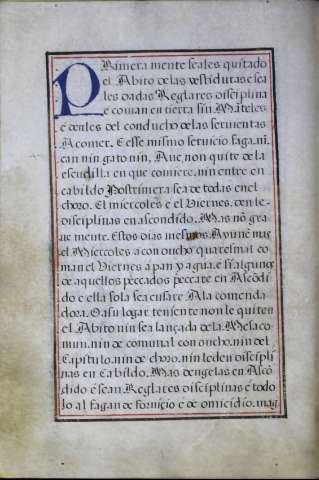 PRimera mente seales quitado
el Abito delas vestiduras e sea
les dadas Reglares disciplina
e coman en tierra sin Māteles
e denles del conducho delas seruientas
A comer. E esse mismo seruicio fagan. ni
can nin gato nin, Aue, non quite dela
escudilla en que comiere. nin entre en
cabildo Postrimera sea de todas enel
choro. El miercoles e el Viernes. denle
disciplinas en ascondido. Mas nō gra
ue mente. Estos dias mesmos Ayune mas
el Miercoles a conducho quaresmal co
man el Viernes a pan y agua. e si alguno
de aquellos peccados peccare en Ascōdi
do e ella sola se acusare Ala comenda
dora. O a su lugar teniente non le quiten
el Abito nin sea lançada dela. Mesa co
mun. nin de comunal conducho. nin del
Capitulo. nin de choro. nin le den discipli
nas en Cabildo. Mas dengelas en Ascō
dido e sean Reglares disciplinas e todo
lo al fagan de fornicio e de omicidio. mag